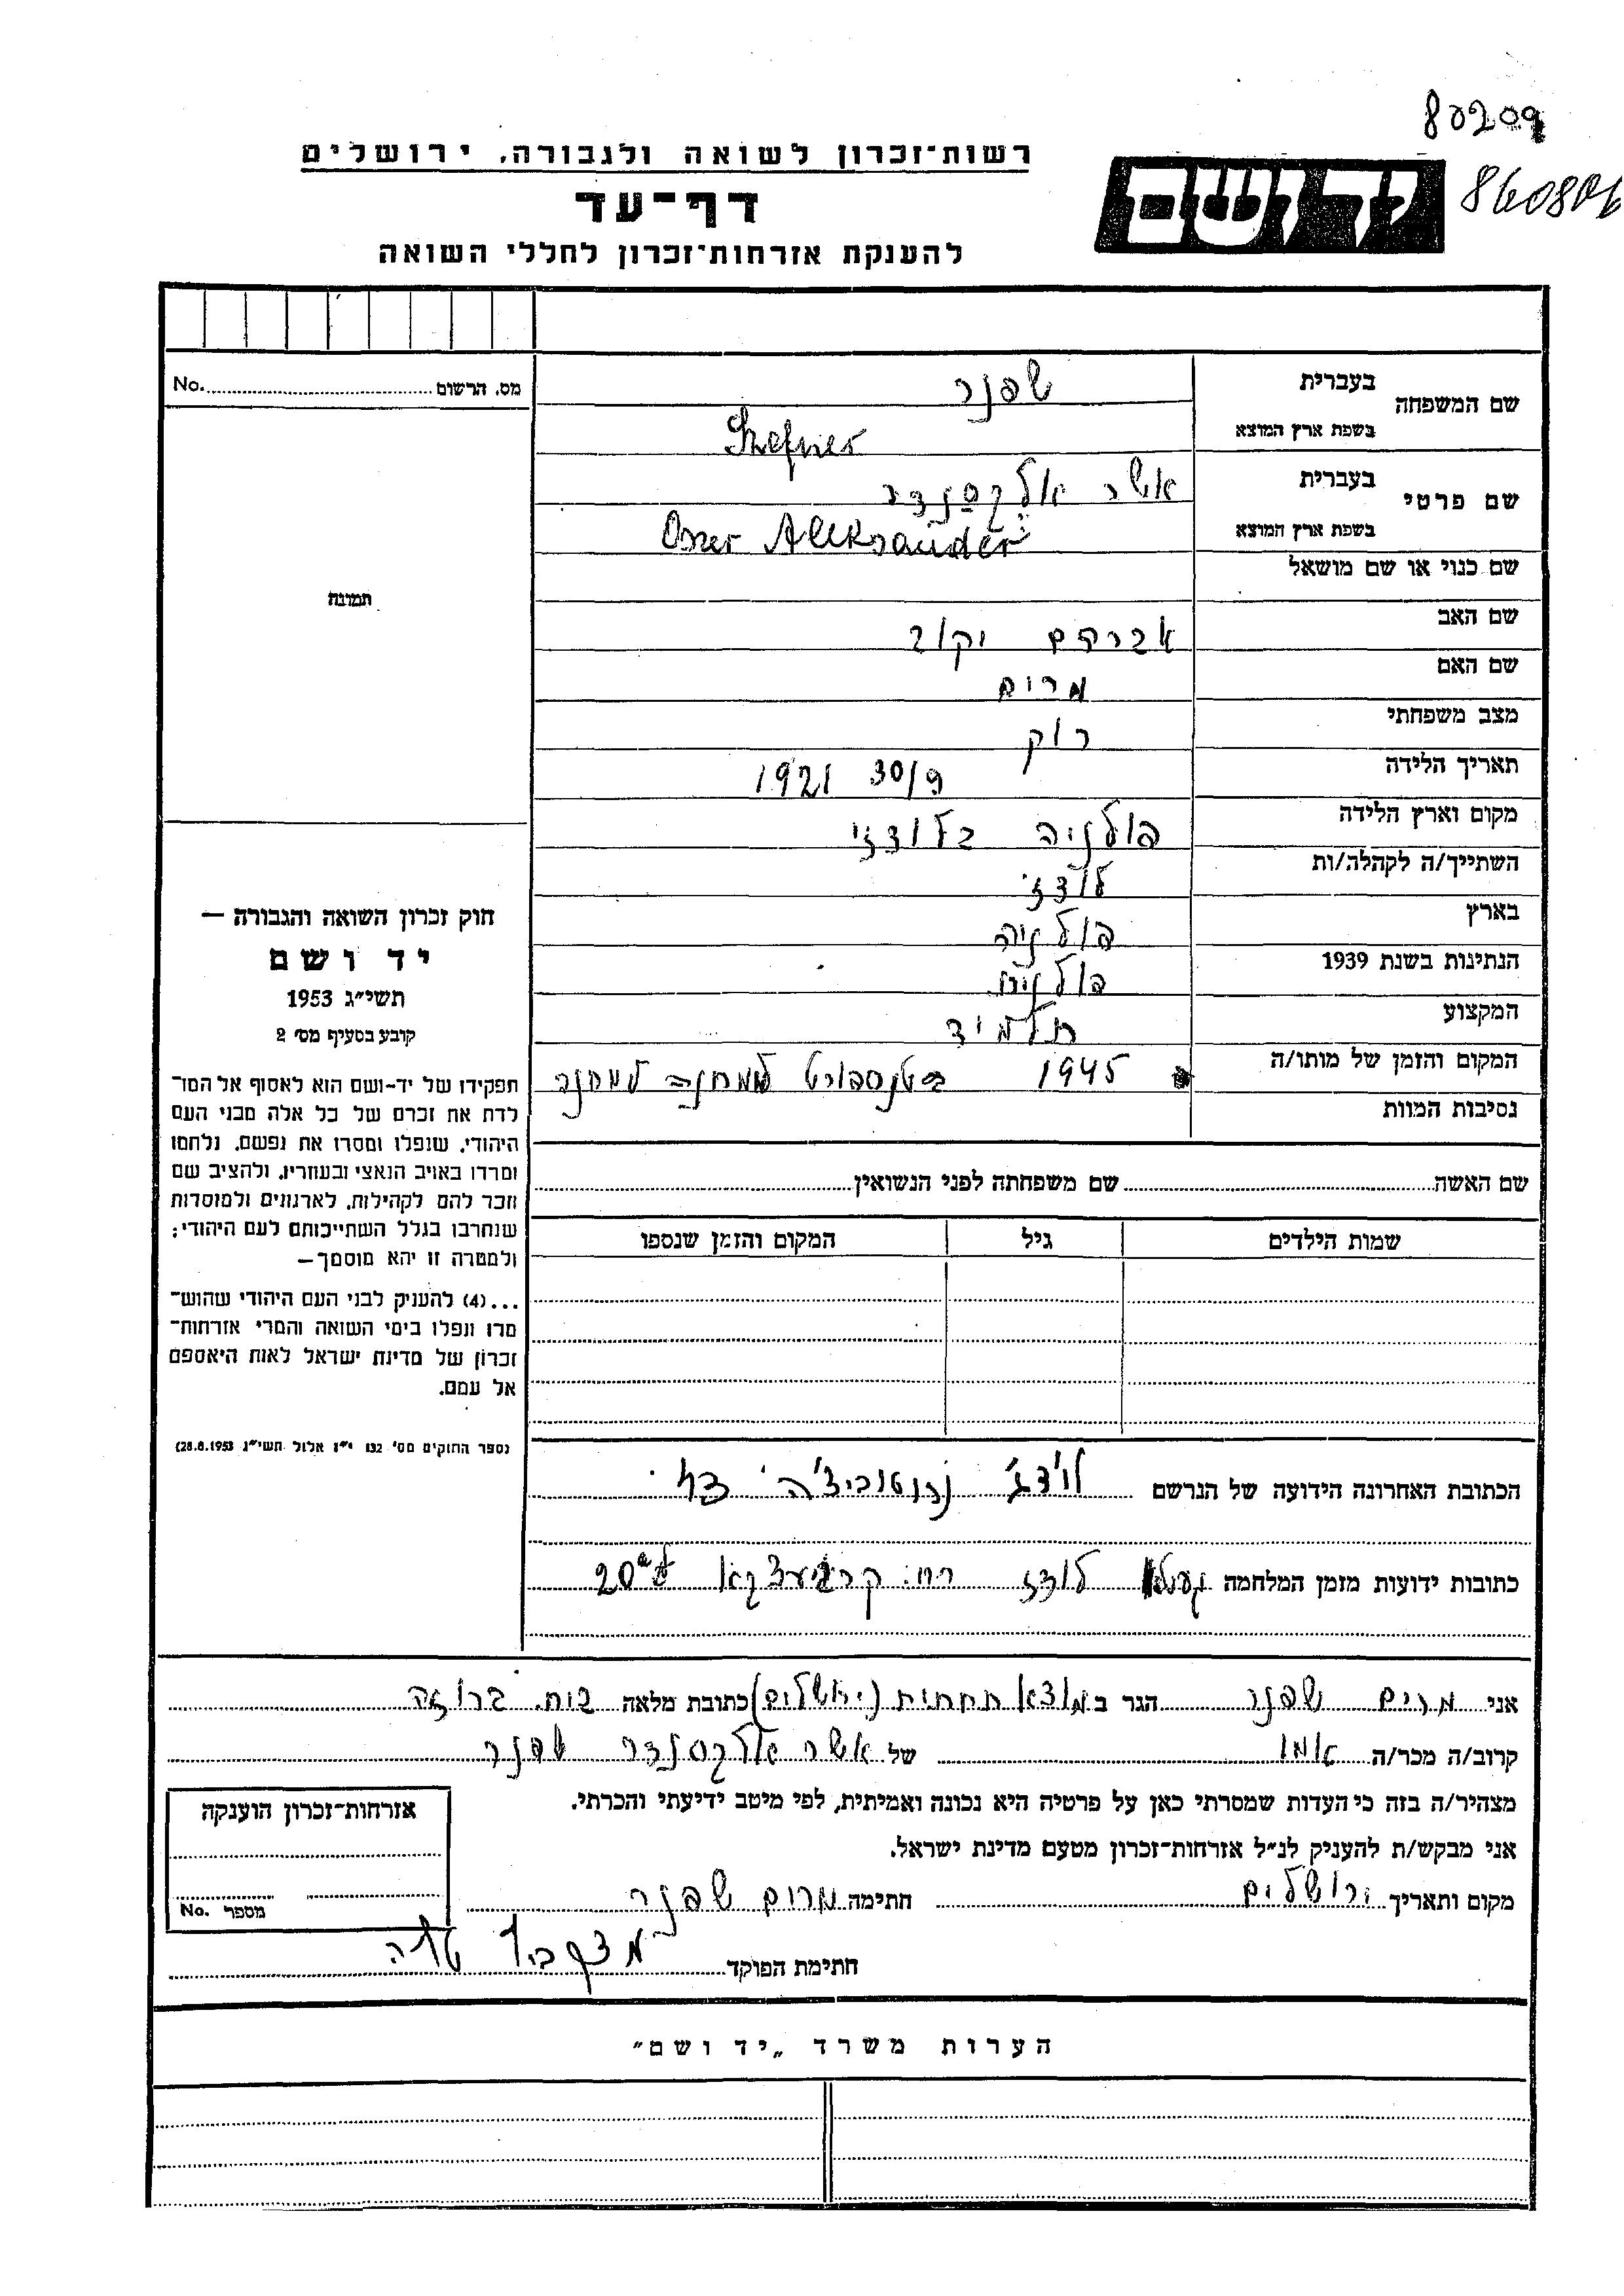 80209
860806
רשות־זכרון לשואה ולגבורה, ירושלים
יד ושם
דף־עד
להענקת אזרחות־זכרון לחללי השואה
מס. הרשום No.
תמונה
שם המשפחה בעברית שפנר
בשפת ארץ המוצא Szefner
שם פרטי בעברית אשר אלכסנדר
בשפת ארץ המוצא Oszer Aleksander
שם כנוי או שם מושאל
שם האב אברהם יקוב
שם האם מרים
מצב משפחתי רוק
תאריך הלידה 30/9 1921
מקום וארץ הלידה פולניה בלודזי
השתייך/ה לקהלה/ות לודזי
בארץ פולניה
הנתינות בשנת 1939 פולניה
המקצוע תלמיד
המקום והזמן של מותו/ה 1945 בטנספורט למחנה
נסיבות המוות
שם האשה שם משפחתה לפני הנשואין
שמות הילדים גיל המקום והזמן שנספו
חוק זכרון השואה והגבורה —
יד ושם
תשי״ג 1953
קובע בסעיף מס׳ 2
תפקידו של יד-ושם הוא לאסוף אל המו־
לדת את זכרם של כל אלה מבני העם
היהודי, שנפלו ומסרו את נפשם, נלחמו
ומרדו באויב הנאצי ובעוזריו, ולהציב שם
וזכר להם לקהילות, לארגונים ולמוסדות
שנחרבו בגלל השתייכותם לעם היהודי;
ולמטרה זו יהא מוסמך—
...(4) להעניק לבני העם היהודי שהוש־
מדו ונפלו בימי השואה והמרי אזרחות־
זכרון של מדינת ישראל לאות היאספם
אל עמם.
(ספר החוקים מס׳ 132 י״ז אלול תשי״ג 28.8.1953)
הכתובת האחרונה הידועה של הנרשם לודג׳
כתובות ידועות מזמן המלחמה לודז רח. 20
אני מרים שפנר הגר ב מוצא תחתית (ירושלים) כתובת מלאה ברוזה
קרוב/ה מכר/ה אמו של אשר אלכסנדר שפנר
מצהיר/ה בזה כי העדות שמסרתי כאן על פרטיה היא נכונה ואמיתית, לפי מיטב ידיעתי והכרתי.
אני מבקש/ת להעניק לנ״ל אזרחות־זכרון מטעם מדינת ישראל.
מקום ותאריך ירושלים חתימה מרים שפנר
חתימת הפוקד
אזרחות־זכרון הוענקה
מספר No.
הערות משרד „יד ושם״